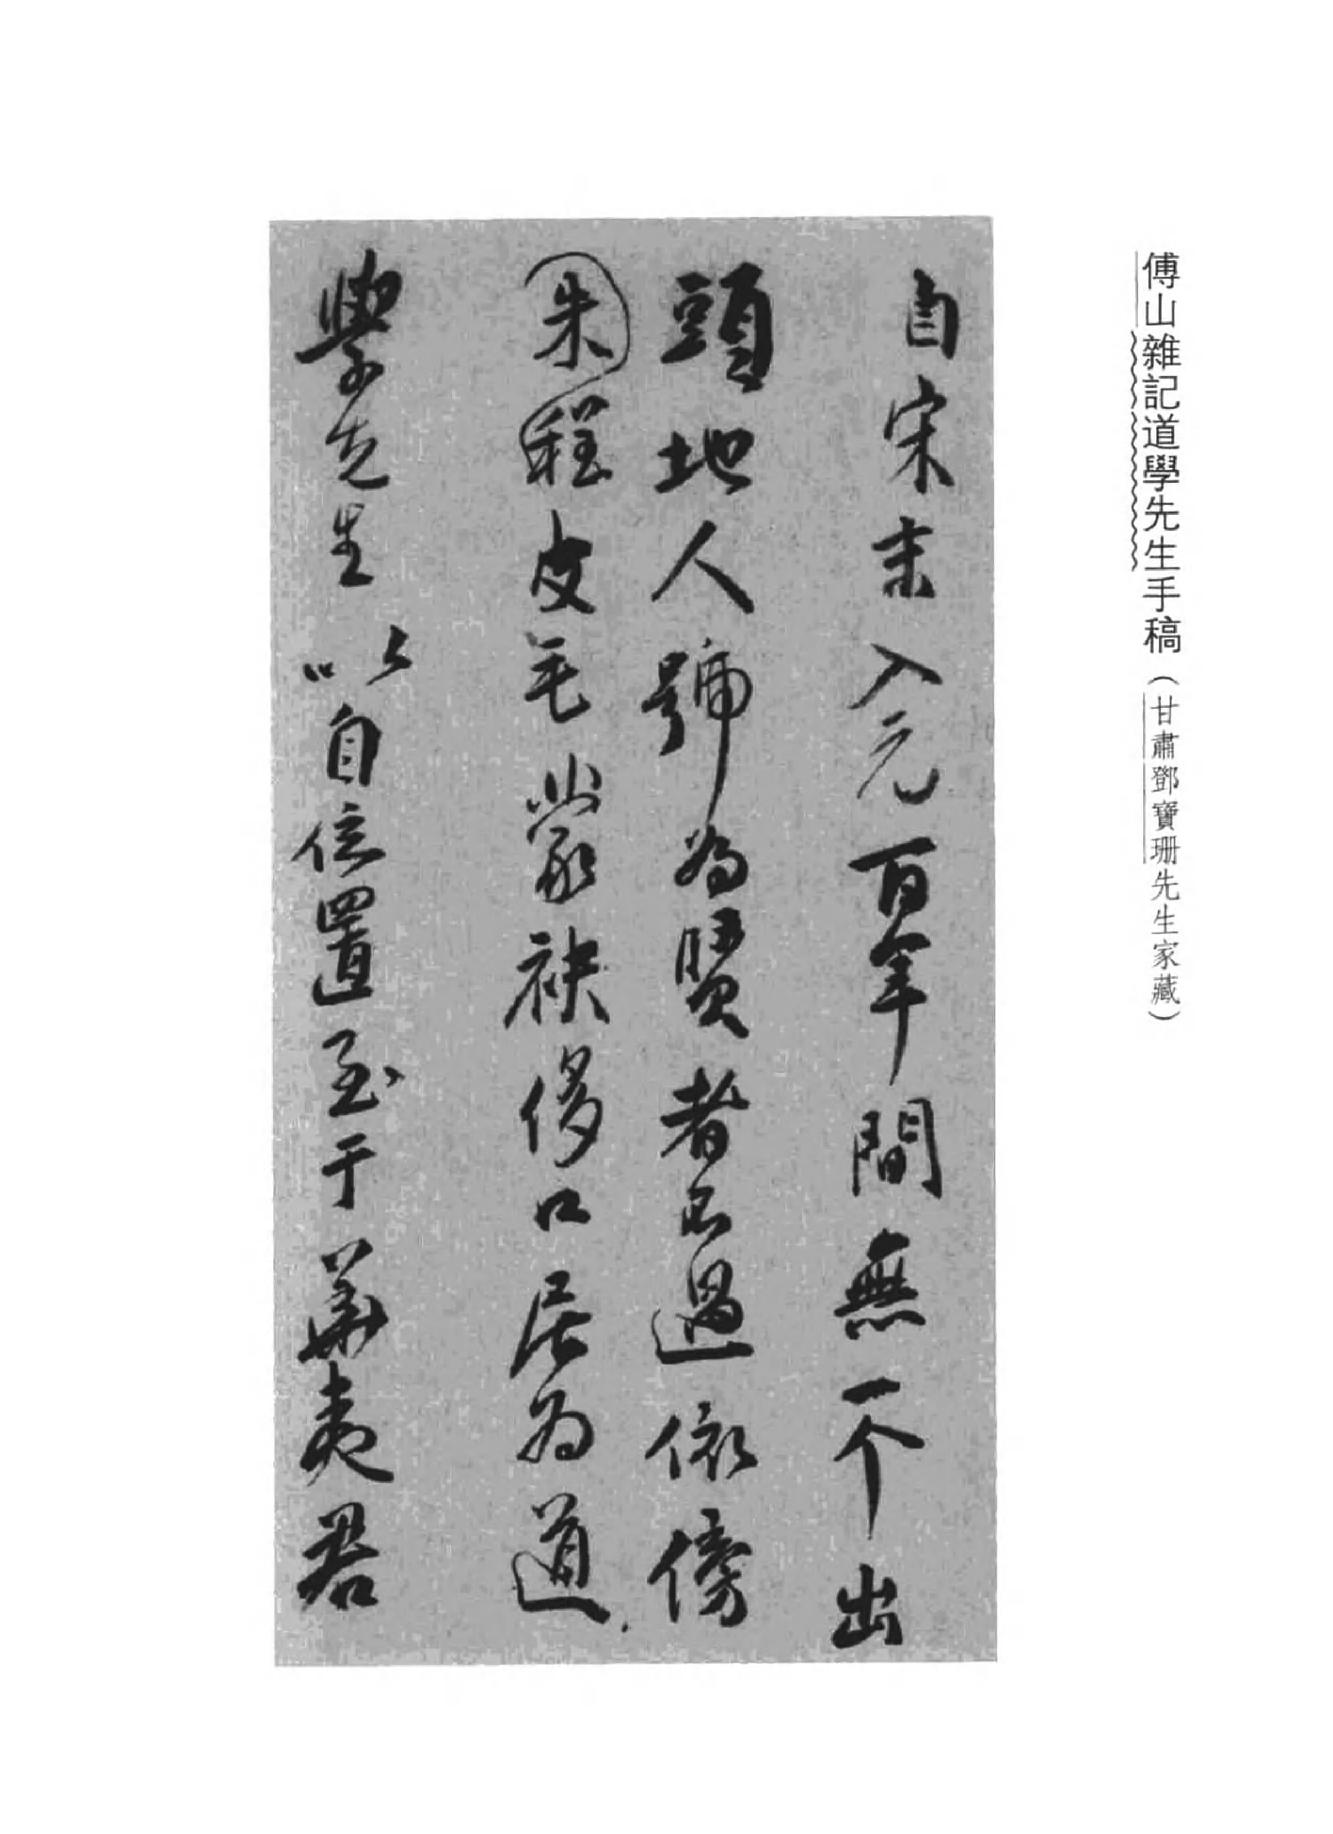 傅山雜記道學先生手稿(甘肅鄧寶珊先生家藏)
自宋末入元百年間無一个出
頭地人號為賢者不過依傍
朱程皮毛蒙袂侈口居為道
學先生以自位置至于華夷君